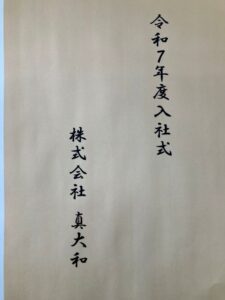 令和7年度入社式
株式会社 真大和